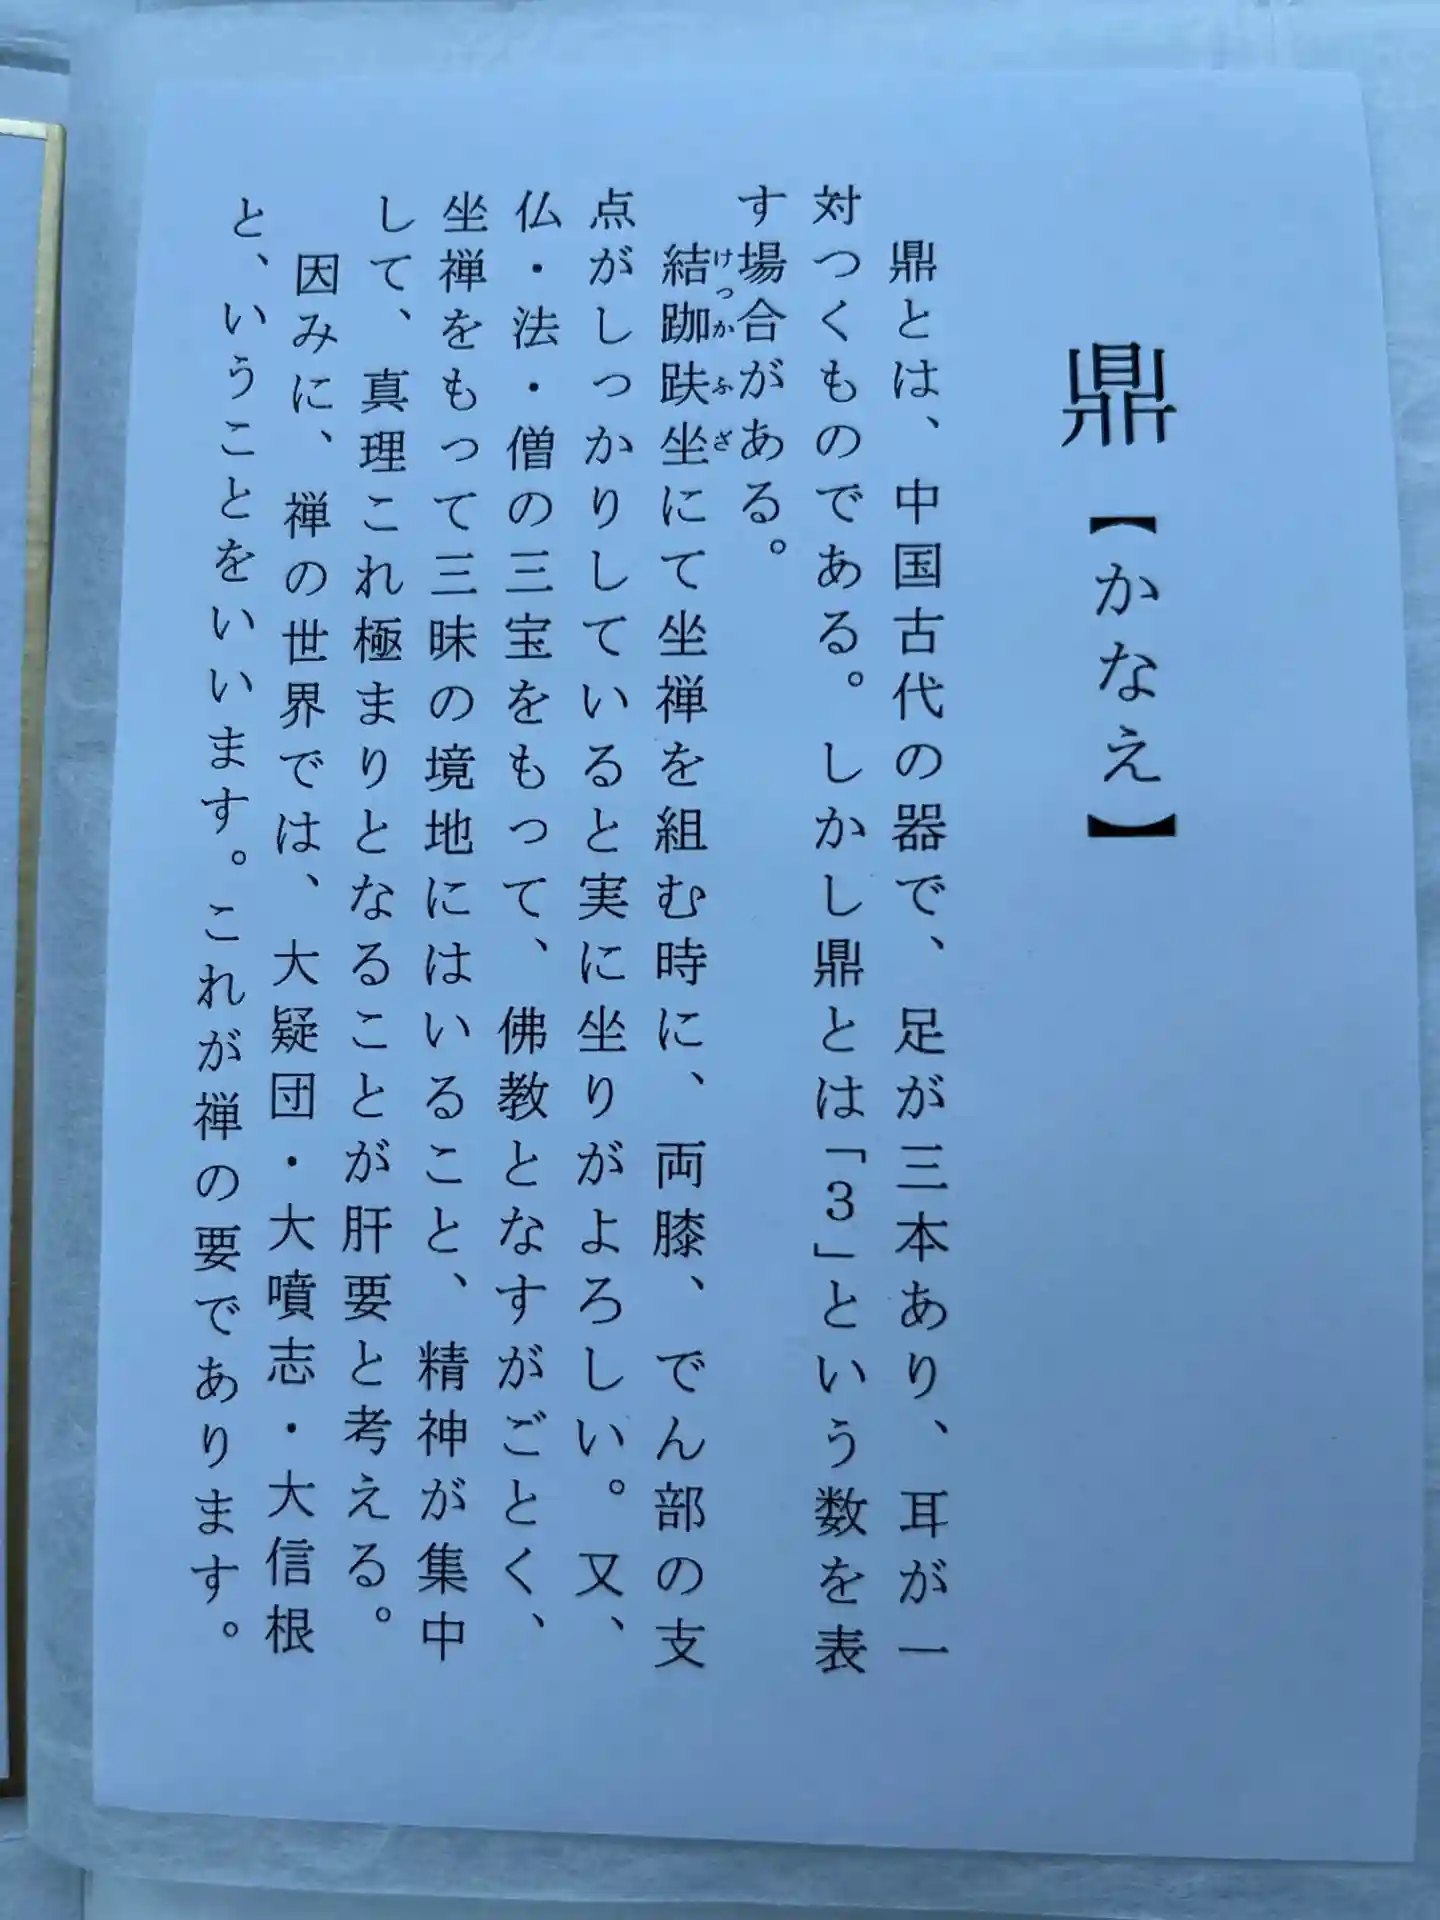 鼎【かなえ】
鼎とは、中国古代の器で、足が三本あり、耳が一
対つくものである。しかし鼎とは「3」という数を表
す場合がある。
結跏趺坐にて坐禅を組む時に、両膝、でん部の支
けっかふざ
点がしっかりしていると実に坐りがよろしい。又、
仏・法・僧の三宝をもって、佛教となすがごとく、
坐禅をもって三昧の境地にはいること、精神が集中
して、真理これ極まりとなることが肝要と考える。
因みに、禅の世界では、大疑団・大噴志・大信根
と、いうことをいいます。これが禅の要であります。